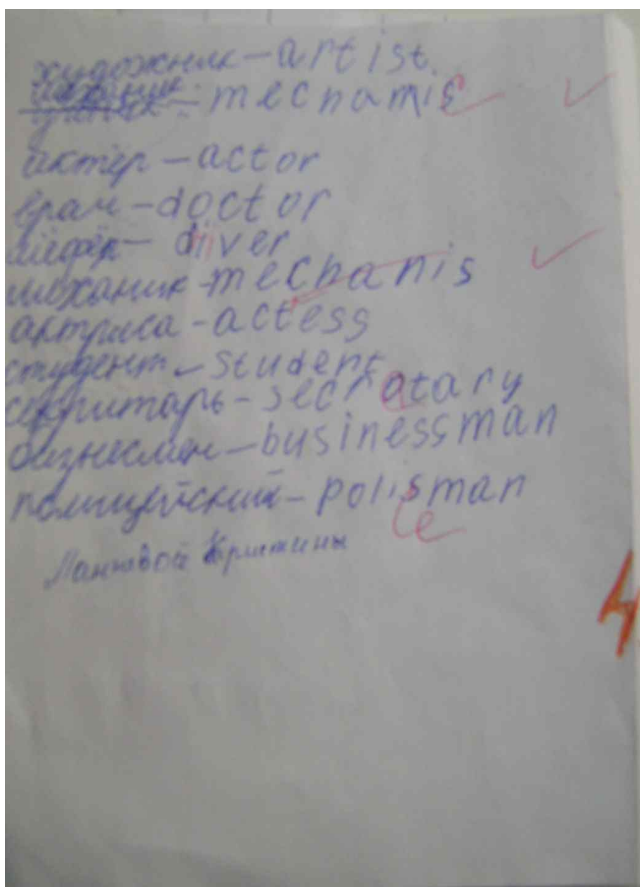 художник - artist.
механик - mecnamis
актер - actor
врач - doctor
шофёр - driver
механик - mechanis
актриса - actess
студент - student
секритарь - secretary
бизнесмен - businessman
полицейский - polisman
ce
Кристины
4